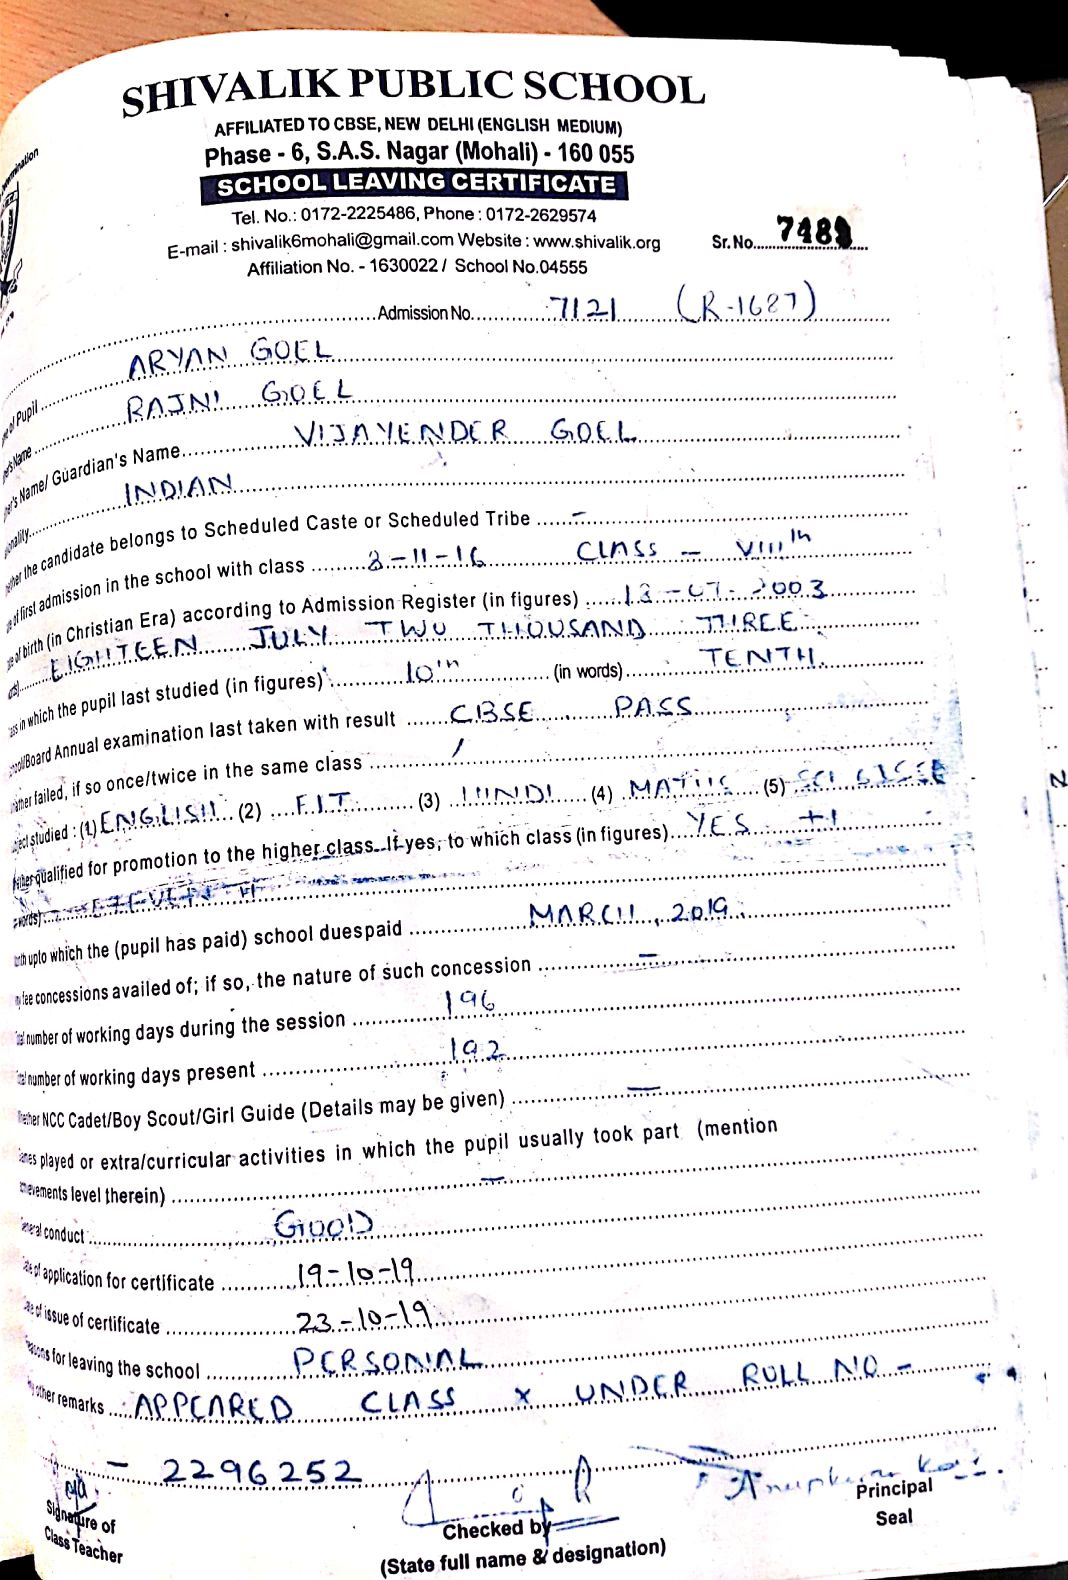 SHIVALIK PUBLIC SCHOOL
AFFILIATED TO CBSE, NEW DELHI (ENGLISH MEDIUM)
Phase - 6, S.A.S. Nagar (Mohali) - 160 055
SCHOOL LEAVING CERTIFICATE
Tel. No.: 0172-2225486, Phone : 0172-2629574
E-mail : shivalik6mohali@gmail.com Website : www.shivalik.org
Sr. No.
Affiliation No. - 1630022 / School No.04555
Admission No. 7121 (R-1687)
of Pupil ARYAN GOEL
Name RAJNI GOEL
Name/ Guardian's Name VIJAYENDER GOEL
INDIAN
the candidate belongs to Scheduled Caste or Scheduled Tribe -
of first admission in the school with class 8-11-16 CLASS - VIIIth
of birth (in Christian Era) according to Admission Register (in figures) 18-07-2003
EIGHTEEN JULY TWO THOUSAND THREE
in which the pupil last studied (in figures) 10th (in words) TENTH
Board Annual examination last taken with result CBSE PASS
failed, if so once/twice in the same class /
studied : (1) ENGLISH (2) F.I.T (3) HINDI (4) MATHS (5) SCI
qualified for promotion to the higher class. If yes, to which class (in figures) YES +1
words) ELEVENTH
upto which the (pupil has paid) school duespaid MARCH, 2019
fee concessions availed of; if so, the nature of such concession -
number of working days during the session 196
number of working days present 192
NCC Cadet/Boy Scout/Girl Guide (Details may be given) -
played or extra/curricular activities in which the pupil usually took part (mention
level therein) -
conduct GOOD
of application for certificate 19-10-19
of issue of certificate 23-10-19
for leaving the school PERSONAL
other remarks APPEARED CLASS X UNDER ROLL NO -
- 2296252
Signature of
Class Teacher
Checked by
(State full name & designation)
Principal
Seal